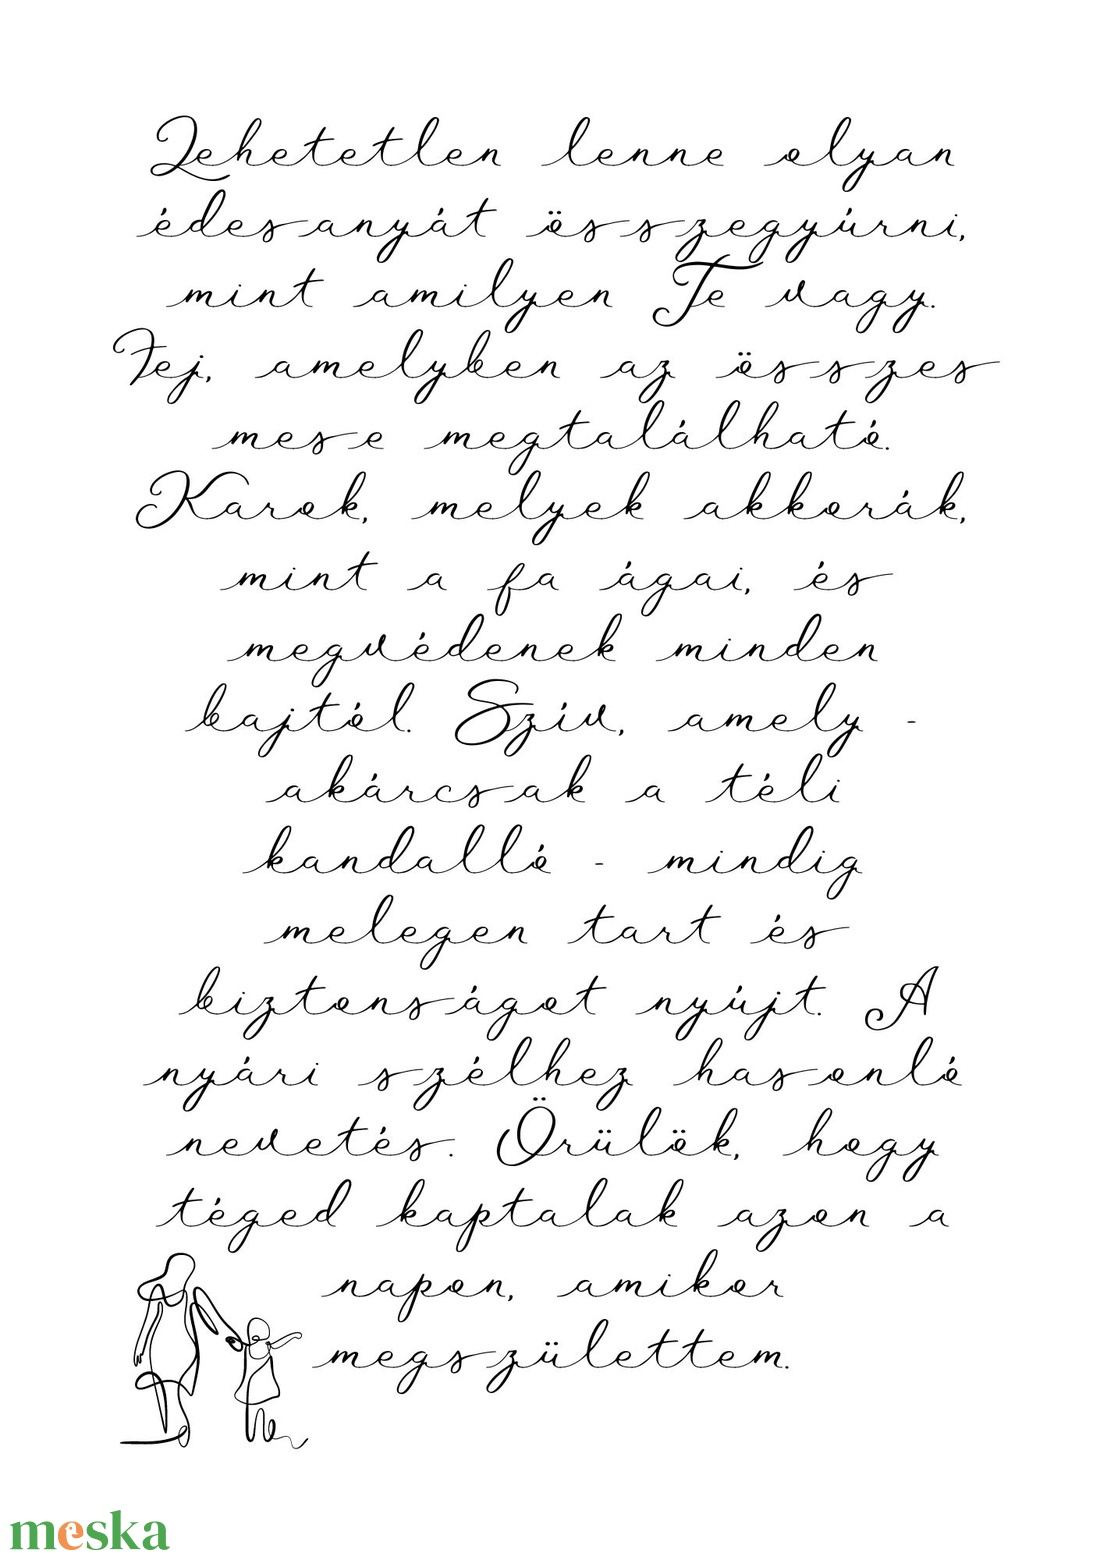 Lehetetlen lenne olyan
édesanyát összegyúrni,
mint amilyen Te vagy.
Fej, amelyben az összes
mese megtalálható.
Karok, melyek akkorák,
mint a fa ágai, és
megvédenek minden
bajtól. Szív, amely -
akárcsak a téli
kandalló - mindig
melegen tart és
biztonságot nyújt. A
nyári szélhez hasonló
nevetés. Örülök, hogy
téged kaptalak azon a
napon, amikor
megszülettem.
meska